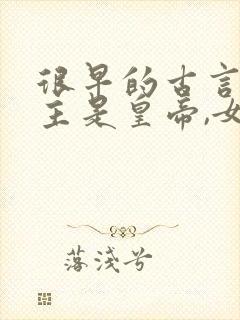 很早的古言
主是皇帝,女
落淺兮